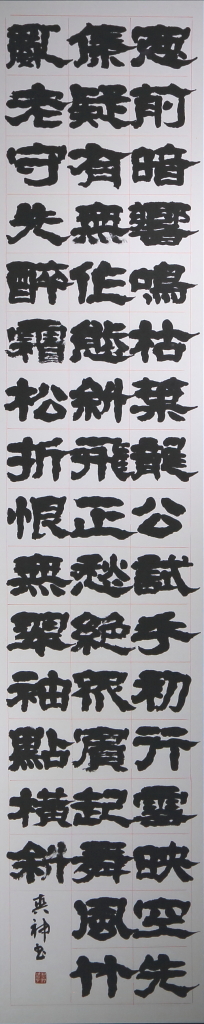 窗前暗響鳴枯葉龍公試手初行雪映空先
集疑有無作態斜飛正愁絕眾賓起舞風竹
亂老守先醉霜松折恨無翠袖點橫斜
神书